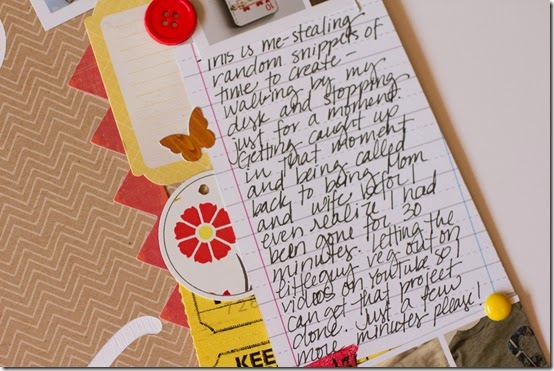 This is me-stealing
random snippets of
time to create-
walking by my
desk and stopping
just for a moment.
Getting caught up
in that moment
and being called
back to being Mom
and wife before I
even realize I had
been gone for 30
minutes. Letting the
little guy veg out on
videos on Youtube so I
can get that project
done. Just a few
more minutes please!
KEE